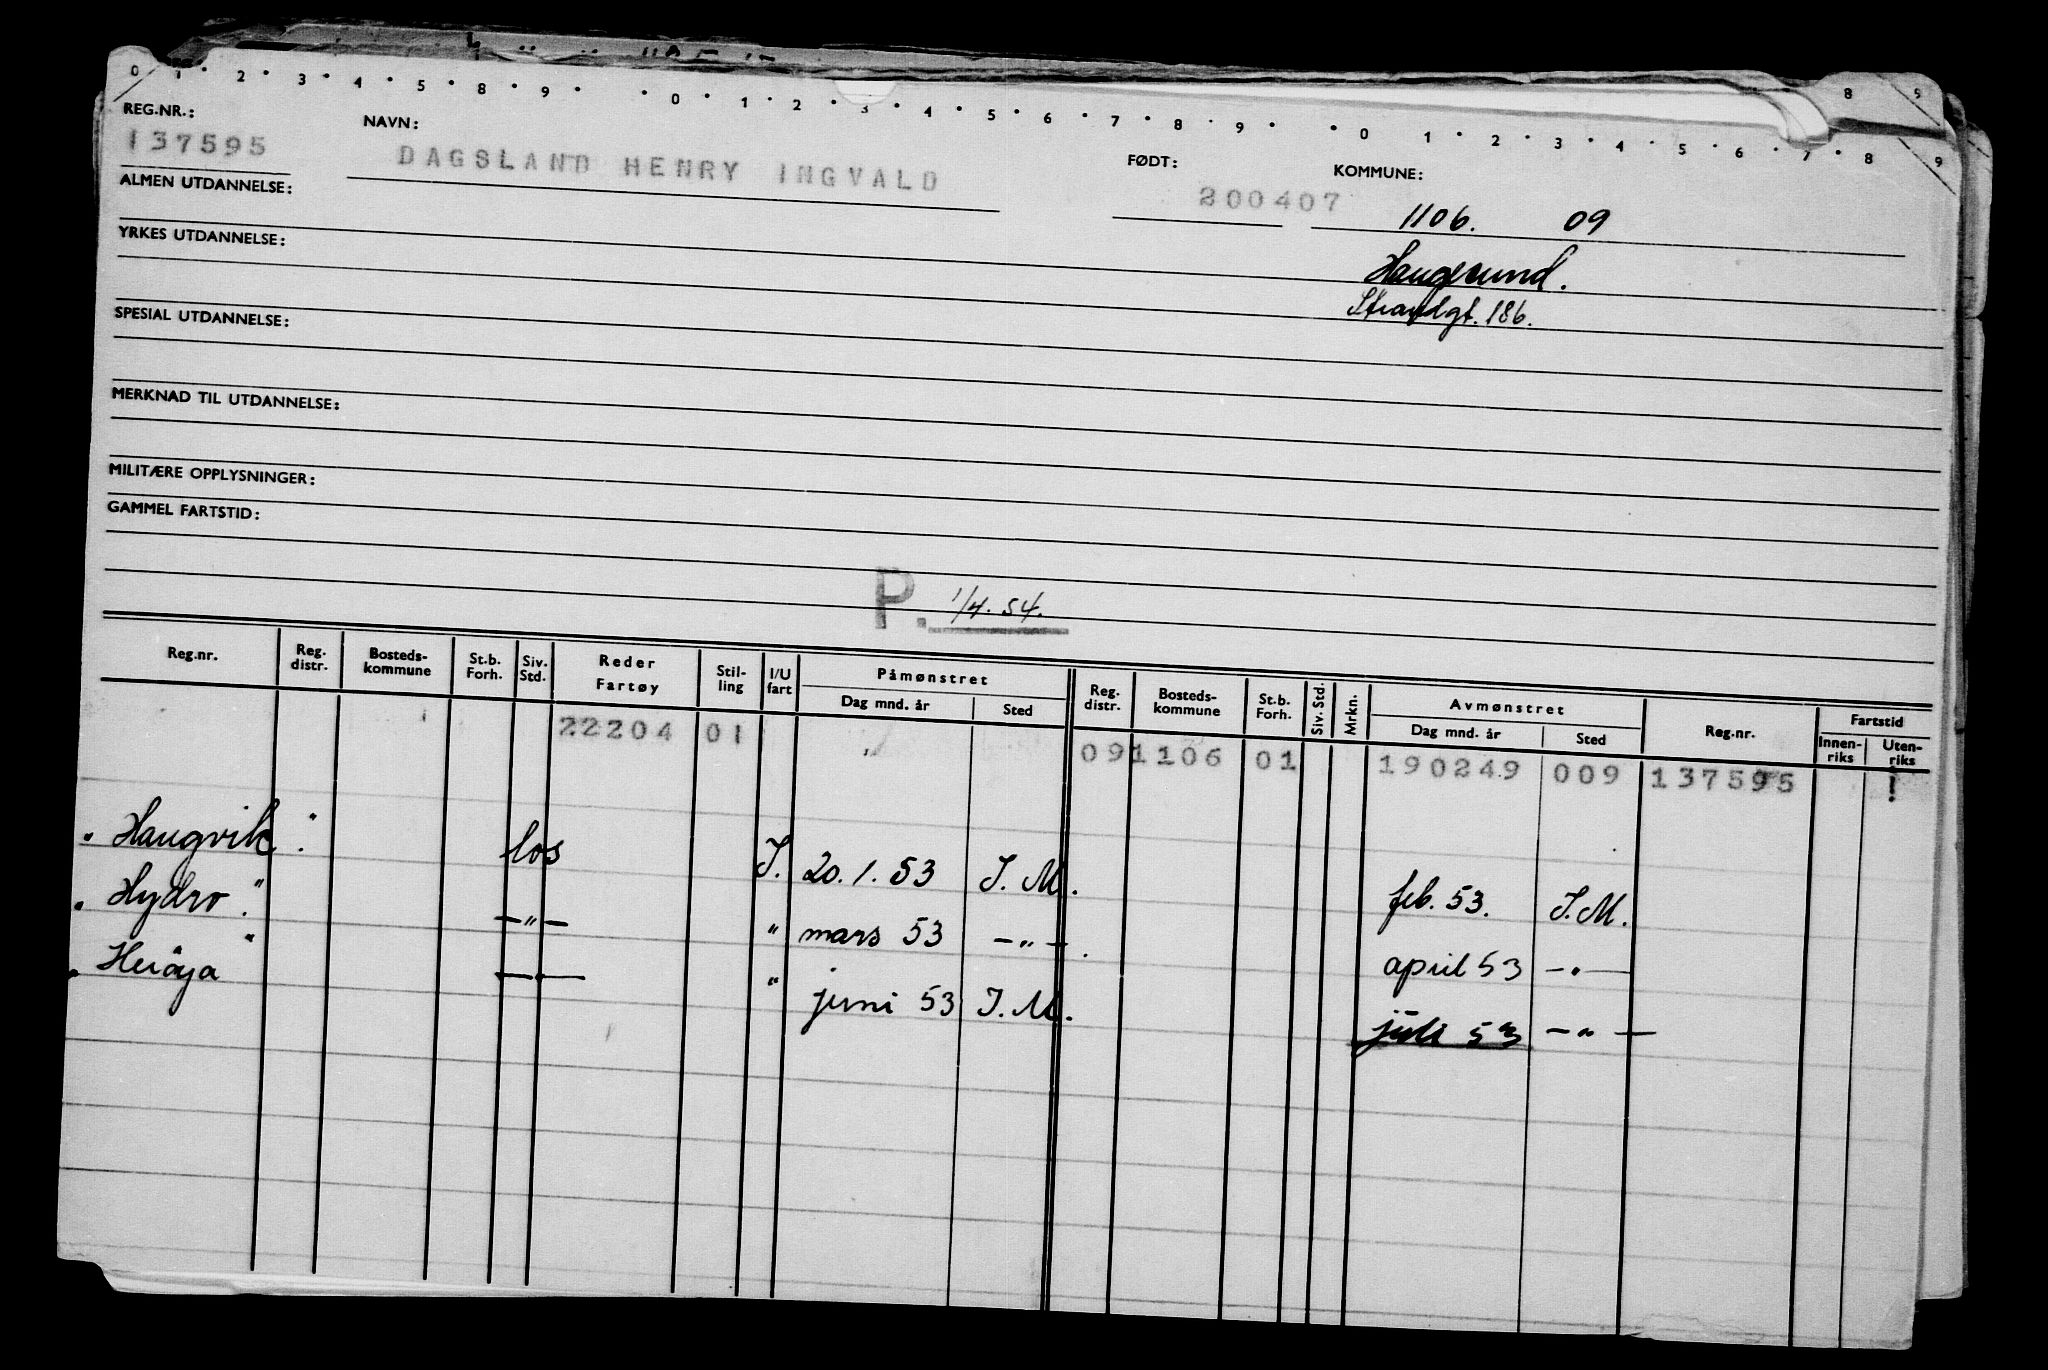 0 1 • 2 • 3 • 4 • 5 • 8 • 9 • • 0 • 1 • 2 • 3 • 4 • 5 • 6 • 7 • 8 • 9 • • 0 1 • 2 • 3 • 4 • 5 • 6 • 7 • 8 9
8 9
REG.NR.: NAVN: FØDT: KOMMUNE:
137595 DAGSLAND HENRY INGVALD 200407 1106. 09
ALMEN UTDANNELSE:
Haugesund.
YRKES UTDANNELSE:
Strandgt. 186.
SPESIAL UTDANNELSE:
MERKNAD TIL UTDANNELSE:
MILITÆRE OPPLYSNINGER:
GAMMEL FARTSTID:
P. 1/4. 54.
Reg.nr. Reg. distr. Bosteds-kommune St.b. Forh. Siv. Std. Reder Fartøy Stil-ling I/U fart Påmønstret Dag mnd. år Sted Reg. distr. Bosteds-kommune St.b. Forh. Siv. Std. Mrkn. Avmønstret Dag mnd. år Sted Reg.nr. Fartstid Innen-riks Uten-riks
22204 01 09 1106 01 190249 009 137595 !
" Haugvik " . los I. 20. 1. 53 I. M. feb. 53. I. M.
" Hydro " . — " — " mars 53 — " — . april 53 — " —
" Herøya " — " — " juni 53 I. M. juli 53 — " —